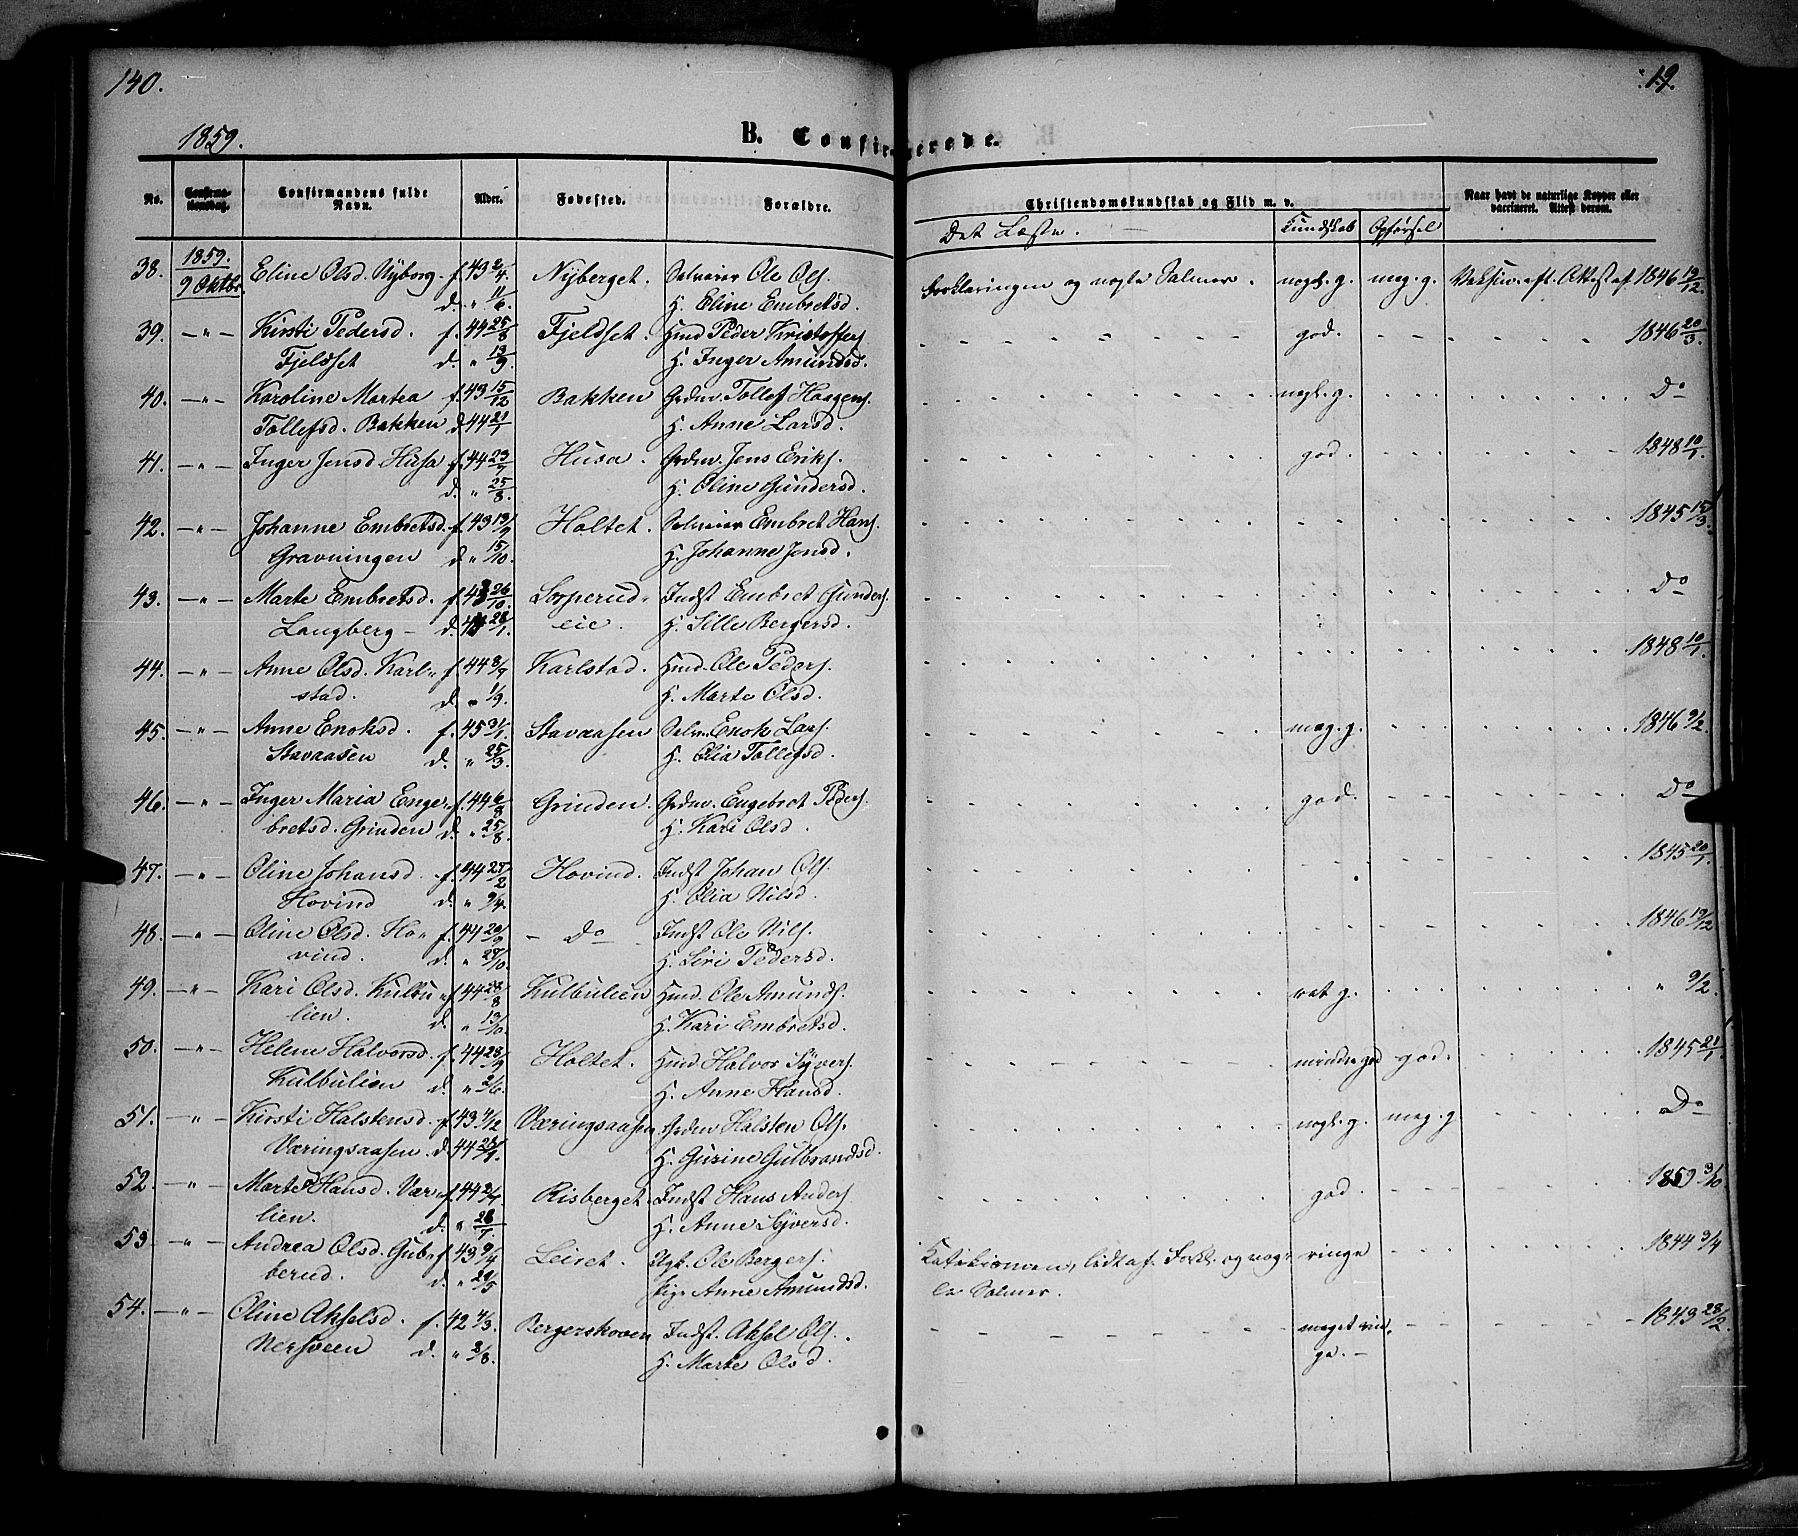 140.
19.
1859.
B. Confirmerede.
No.
Confirma-
tionsdag.
Confirmandens fulde
Navn.
Alder.
Fødested.
Forældre.
Christendomskundskab og Flid m. v.
Naar havt de naturlige Kopper eller
vaccineret. Attest derom.
Det Læste.
Kundskab
Opførsel
38. 1859. Eline Olsd. Nyborg f. 43 2/4 Nyberget. Selveier Ole Ols. Forklaringen og nogle Salmer. nogl. g. meg. g. Vaksin. eft. Attest af 1846 19/12.
9 Oktbr. d. " 11/6 H. Eline Embretsd.
39. — " — Kirsti Pedersd. f. 44 25/8 Fjeldset. Hmd Peder Kristoffers. god. 1846 20/3.
Fjeldset d. " 13/9 H. Inger Amundsd.
40. — " — Karoline Martea f. 43 15/12 Bakken Grdm. Tollef Haagens. nogl. g. Do
Tollefsd. Bakken d. 44 21/1 H. Anne Larsd.
41. — " — Inger Jensd Husa f. 44 23/7 Husa. Grdm. Jens Eriks. god. 1848 10/1.
d. " 25/8. H. Oline Gundersd.
42. — " — Johanne Embretsd. f. 43 13/9 Holtet. Selveier Embret Hans. 1845 15/3.
Gravningen d. " 15/10. H. Johanne Jensd.
43. — " — Marte Embretsd. f. 43 26/10. Losperud- Indst Embret Gunders. Do
Langberg — d. 28/1. eie. H. Sille Bergersd.
44. — " — Anne Olsd. Karl- f. 44 3/7 Karlstad. Hmd. Ole Peders. 1848 10/1.
stad. d. " 1/9. H. Marte Olsd.
45. — " — Anne Enoksd. f. 45 31/1 Stavaasen Selv. Enok Lars. meg. g. 1846 9/2.
Stavaasen d. " 25/3. H. Olia Tollefsd.
46. — " — Inger Maria Enge- f. 44 6/8 Grinden. Grdm. Engebret Peders. god. Do
bretsd. Grinden d. " 25/8. H. Kari Olsd.
47. — " — Oline Johansd. f. 44 27/2 Hovind. Indst Johan Ols. 1845 20/1.
Hovind d. " 9/4. H. Olia Nilsd.
48. — " — Oline Olsd. Ho- f. 44 20/9 - Do Indst Ole Nils. 1846 19/12
vind. d. " 27/10. H. Siri Pedersd.
49. — " — Kari Olsd. Kulbu- f. 44 28/8 Kulbulien Hmd. Ole Amunds. ret g. " 9/2.
lien. d. " 13/10. H. Kari Embretsd.
50. — " — Helene Halvorsd. f. 44 23/9 Holtet. Hmd. Halvor Syvers. mindre god god. 1845 21/1.
Kulbulien d. " 2/6. H. Anne Hansd.
51. — " Kirsti Halstensd. f. 43 4/12 Væringsaasen Grdm Halsten Ols. nogl. g. meg. g. Do
Væringsaasen d. 44 28/1. H. Gurine Gulbrandsd.
52 — " — Marte Hansd. Vær- f. 44 2/7 Risberget. Indst Hans Anders. god. 1859 3/10
lien. d. " 28/7. H. Anne Syversd.
53 — " — Andrea Olsd. Gub- f. 43 9/4 Leiret. Ugk. Ole Bergers. Katekismen, lidt af Forkl. og nog- ringe 1844 3/4
berud. d. " 29/5 Pige Anne Amundsd. le Salmer.
54. — " — Oline Akselsd. f. 42 4/3. Bergerskoven Indst. Aksel Ols. meget rin- 1843 28/2.
Nersveen d. " 3/8. H. Marte Olsd. ge. —